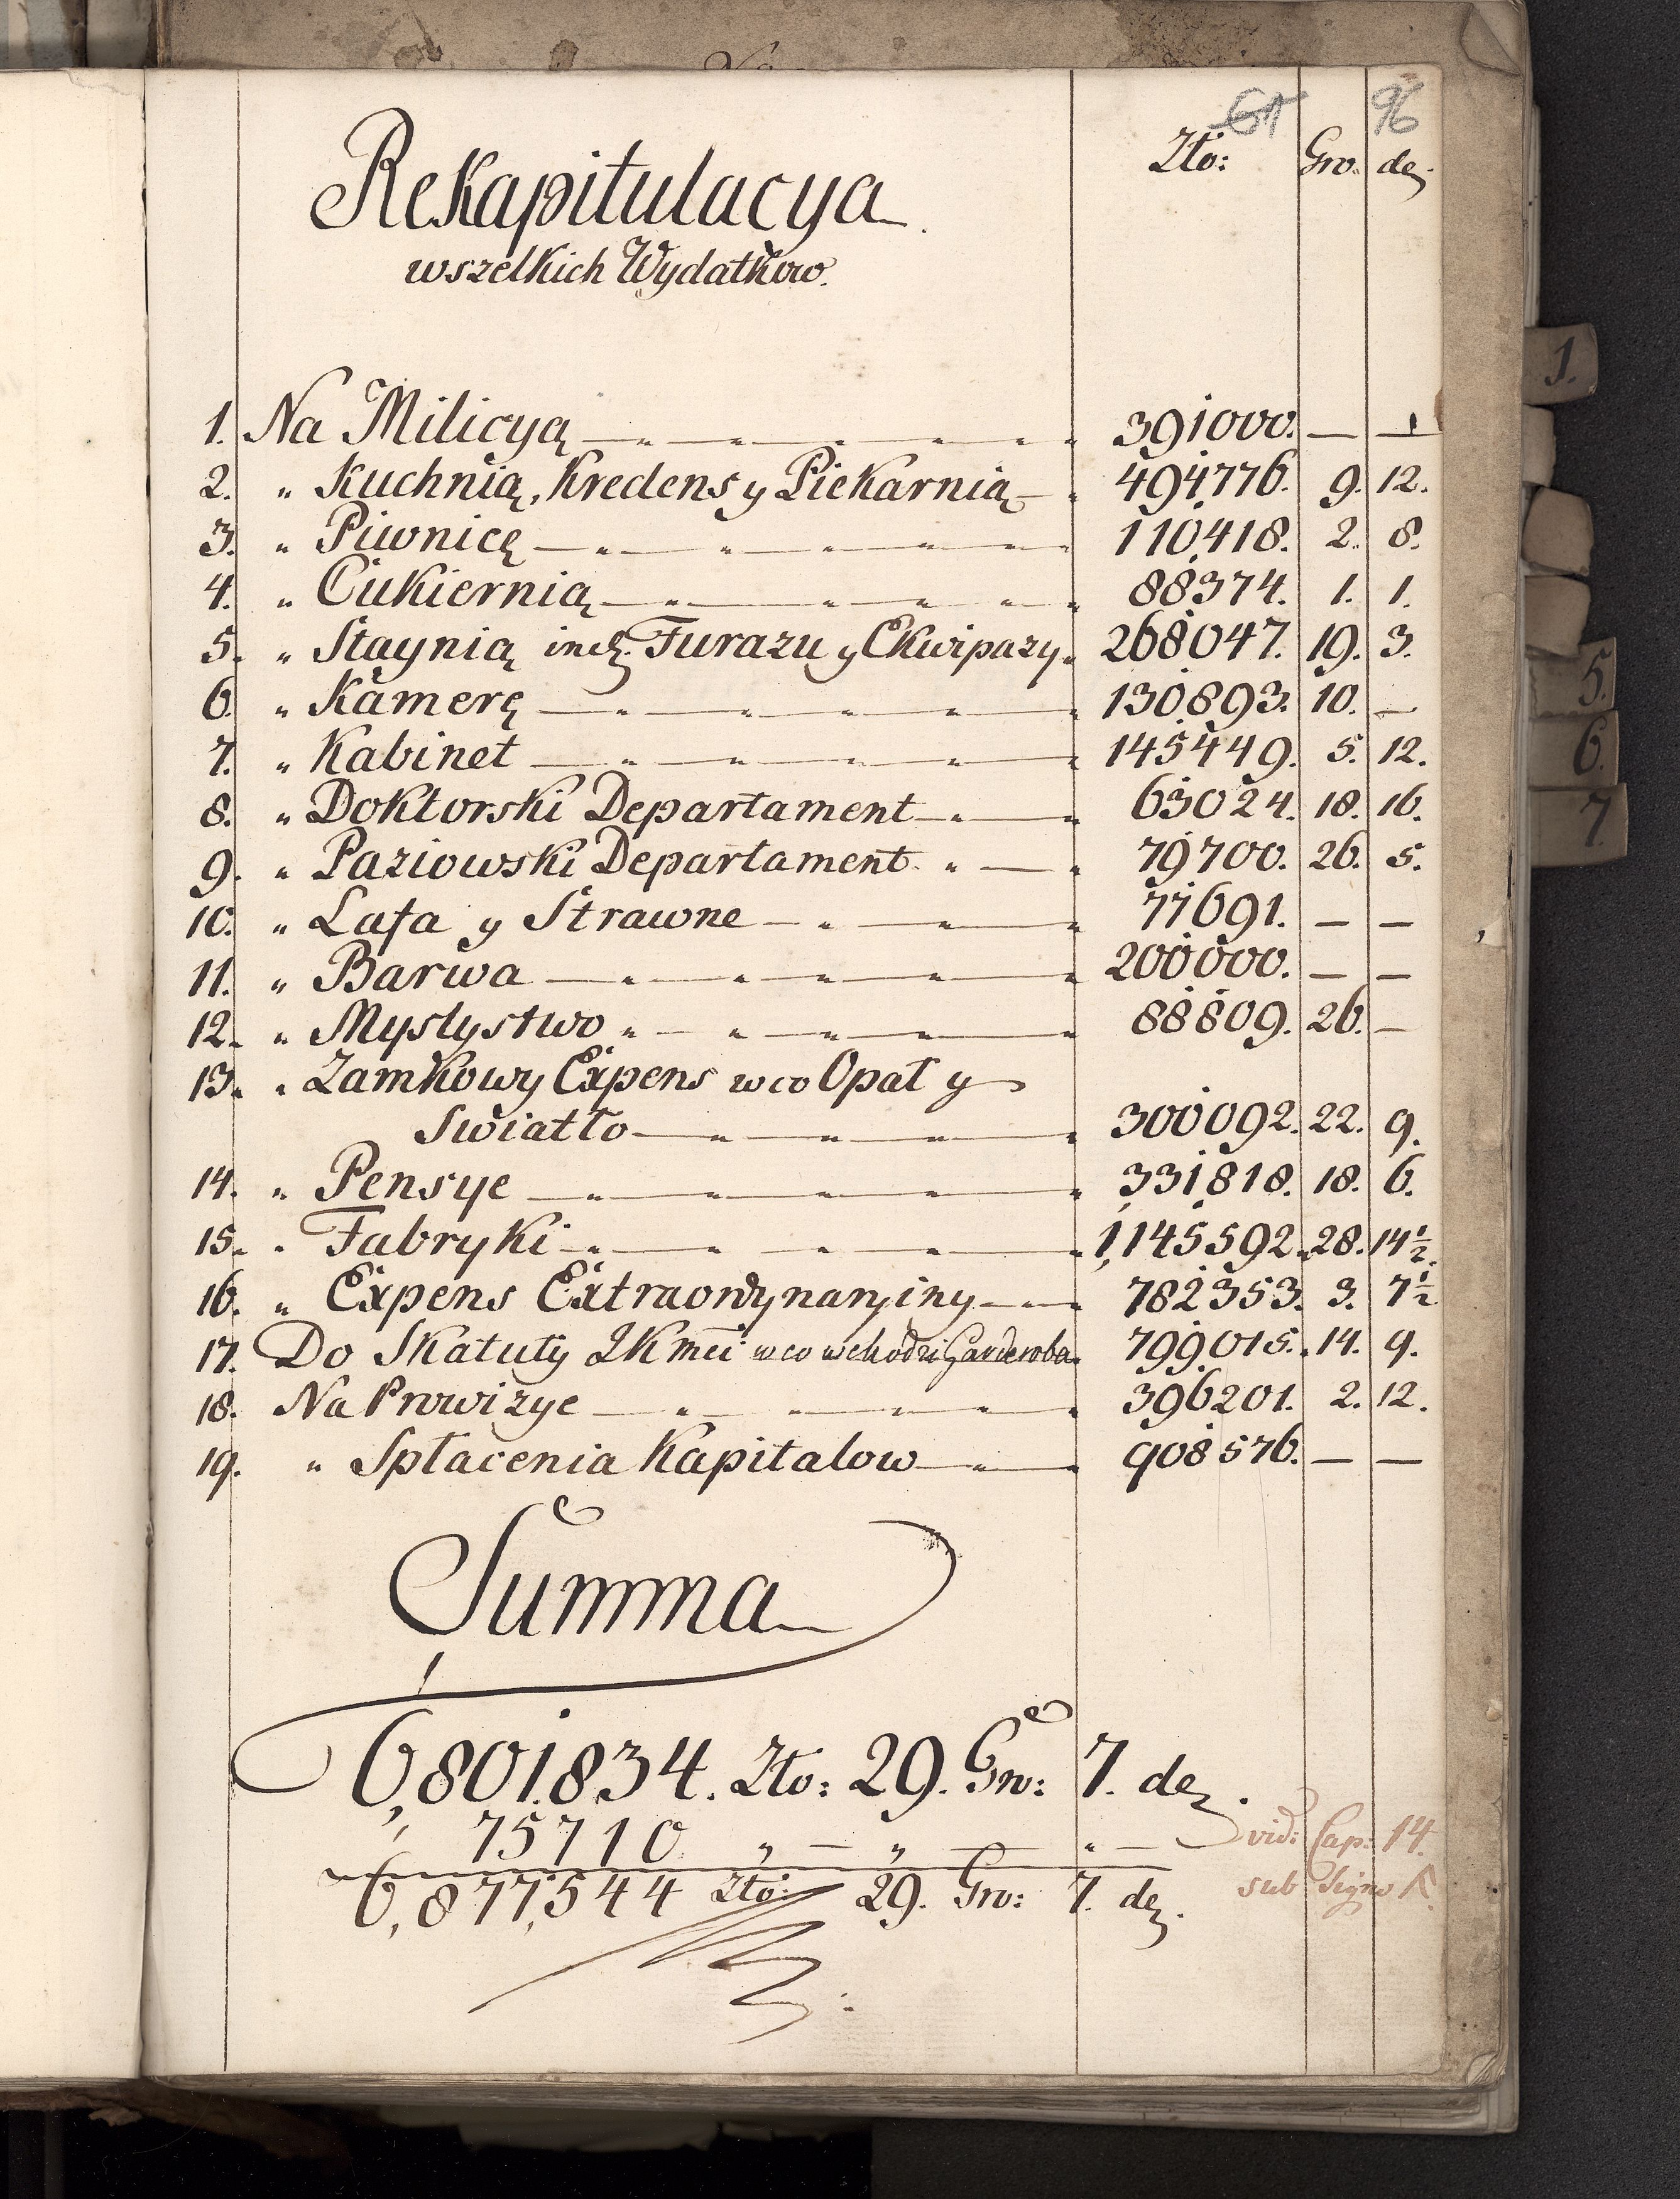 61 96
Zło: Gro. de.
Rekapitulacya
wszelkich Wydatkow.
1. Na Milicyą 391000. — —
2. " Kuchnią, Kredens y Piekarnią 494776. 9. 12.
3. " Piwnicę 110418. 2. 8.
4. " Cukiernią 88374. 1. 1.
5. " Staynią incl. Furazu y Ekwipazy 268047. 19. 3.
6. " Kamerę 130893. 10. —
7. " Kabinet 145449. 5. 12.
8. " Doktorski Departament 63024. 18. 16.
9. " Paziowski Departament 79700. 26. 5.
10. " Lafa y Strawne 77691. — —
11. " Barwa 200000. — —
12. " Myslystwo 88809. 26. —
13. " Zamkowy Expens w co Opał y
Swiatło 300092. 22. 9.
14. " Pensye 331818. 18. 6.
15. " Fabryki 1,145592. 28. 14½.
16. " Expens Extraordynaryiny 782353. 3. 7½
17. Do Skatuły JKmci w co wchodzi Garderoba 799015. 14. 9.
18. Na Prowizye 396201. 2. 12.
19. " Spłacenia Kapitalow 908576. — —
Summa
6,801834. Zło: 29. Gro: 7. de.
75710 " — " — " — vid: Cap: 14.
6,877,544 Zło: 29. Gro: 7. de. sub Signo
1.
5.
6.
7.